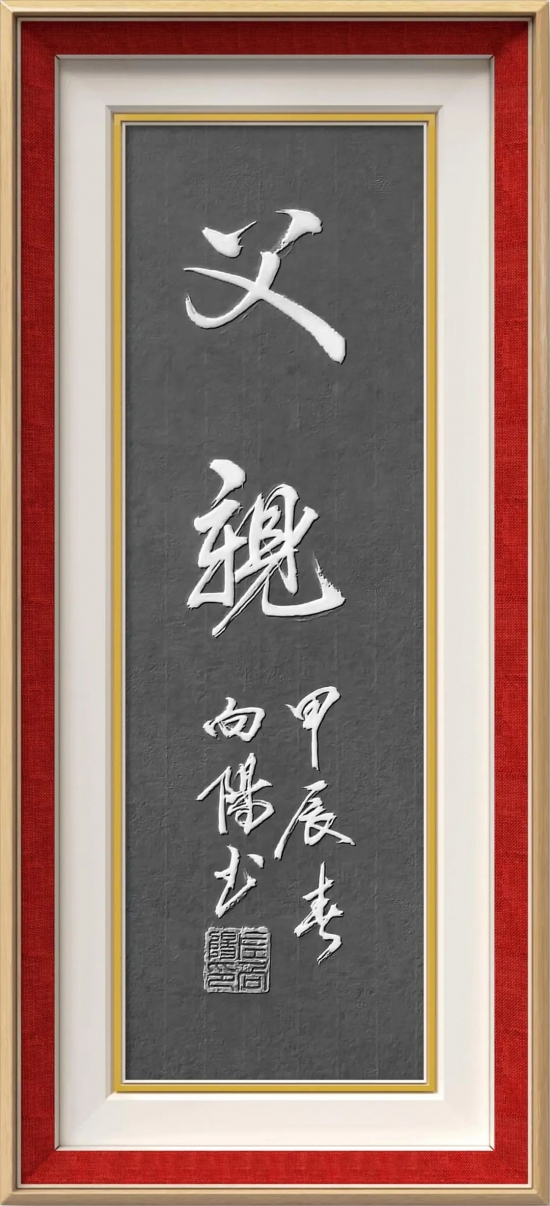 父親
甲辰春
向陽书